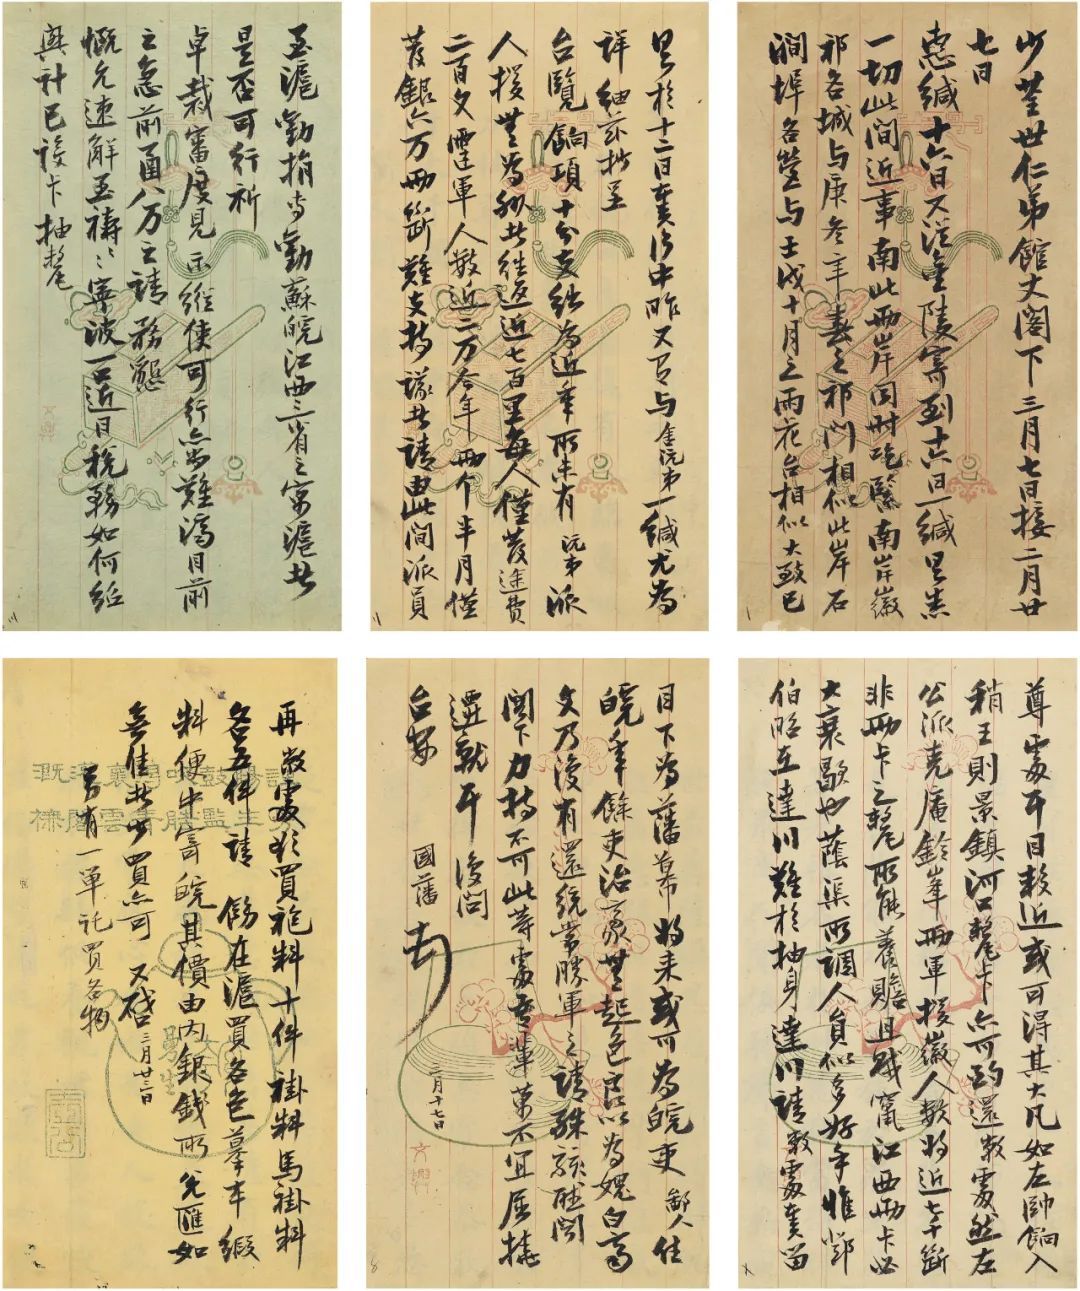 少荃世仁弟館丈閣下三月七日接二月廿
七日
惠緘十六日又從金陵寄到十六日一緘具悉
一切此間近事南北兩岸同時吃緊南岸徽
祁各城與庚冬辛春之祁門相似北岸石
澗埠各營與壬戌十月之雨花台相似大致已
具於十二日奏片中昨又有與舍沅弟一緘尤為
詳細茲抄呈
台覽餉項十分支絀為近年所未有沅弟派
人援黃為此往返近七百里每人僅發途費
二百文霆軍人數近二万今年兩个半月僅
發銀六万兩斷難支持議者請由此間派員
至滬勸捐專勸蘇皖江西三省之寓滬者
是否可行祈
卓裁審度見示縱使可行亦尚難濟目前
之急前函八万之請務懇
慨允速解至禱至禱寧波一口近日稅務如何紹
興計已設卡抽釐
尊處耳目較近或可得其大凡如左帥餉入
稍旺則景鎮河口釐卡亦可酌還敝處然左
公派克庵鈐峯兩軍援徽人數將近七千斷
非兩卡之釐所能養贍且賊竄江西兩卡必
大衰歇也蔭渠所調人員似多好手惟鄧
伯昭在達川難於抽身達川請敝處奏留
目下為藩幕將來或可為皖吏鄙人住
皖年餘吏治毫無起色良以為媿白齊
文乃復有還統常勝軍之請殊駭聽聞
閣下力持不可此等處吾輩萬不宜屈撓
遷就耳復問
台安
國藩頓首
三月十七日
再敝處欲買袍料十件褂料馬褂料
各五件請飭在滬買各色摹本緞
料便中寄皖其價由內銀錢所兌匯如
無佳者少買亦可又啓三月廿三日
另有一單託買各物